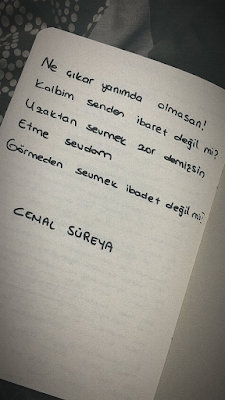 Ne çıkar yanımda olmasan!
Kalbim senden ibaret değil mi?
Uzaktan sevmek zor demişsin
Etme sevdam
Görmeden sevmek ibadet değil mi?
CEMAL SÜREYA